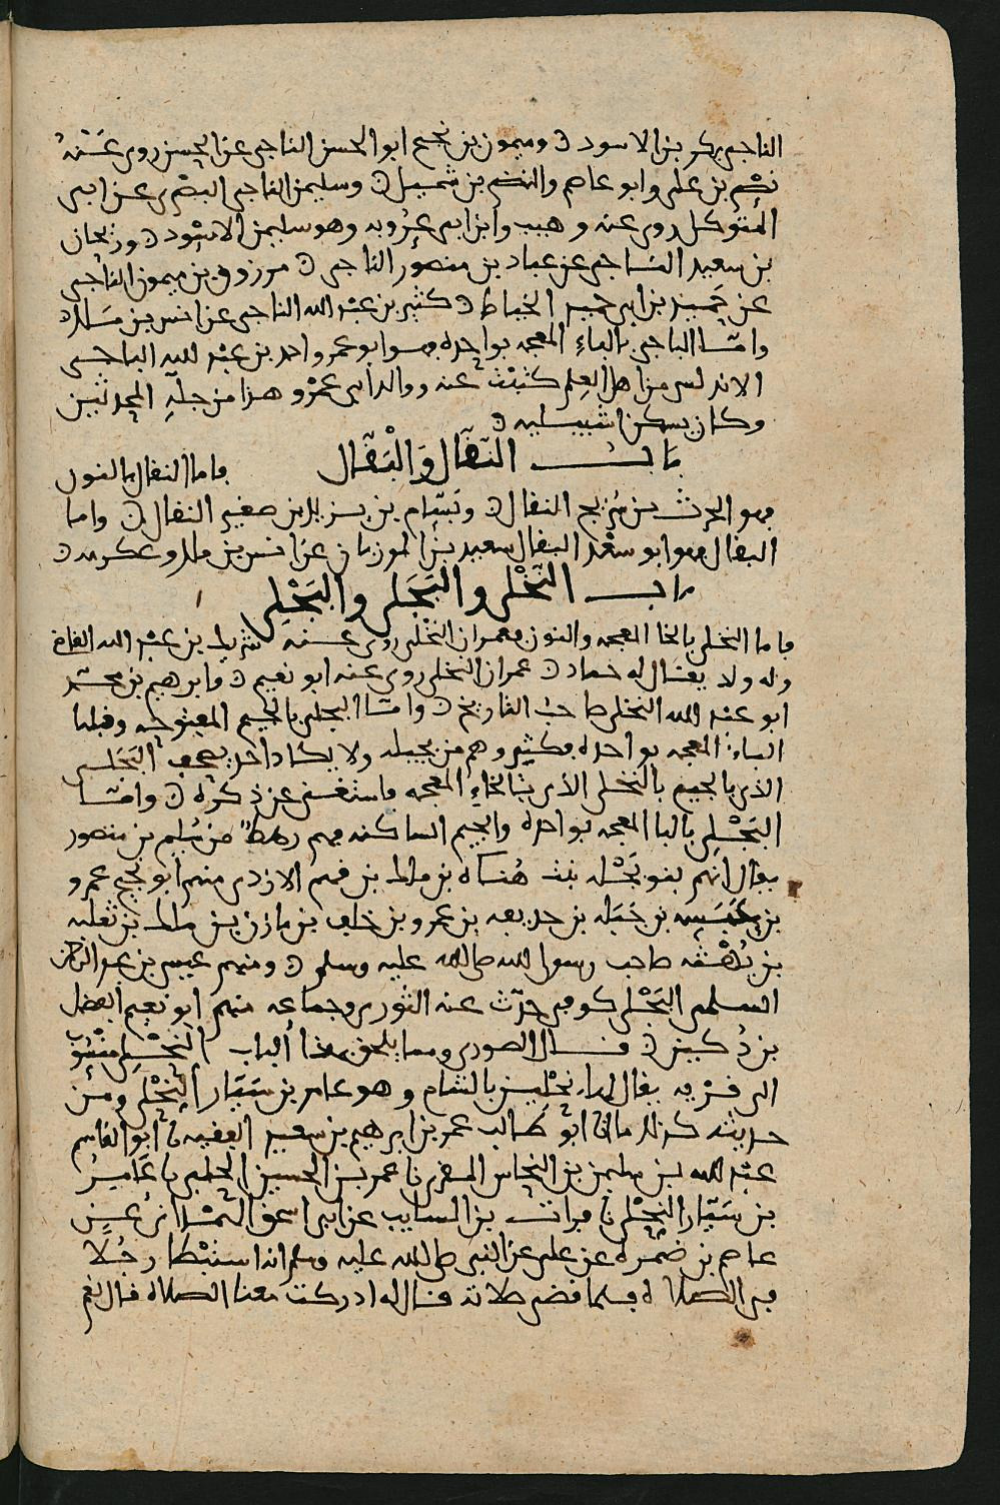 الناجي بكر بن الاسود ۞ وميمون بن نجيح ابو الحسن الناجي عن الحسن روى عنه
نصر بن علي وابو عاصم والنضر بن شميل ۞ وسليمن الناجي البصري عن ابي
المتوكل روى عنه وهيب وابن ابي عروبه وهو سليمن الاسود ۞ وريحان
بن سعيد الساجي عن عباد بن منصور الناجي ۞ مرزوق بن ميمون الناجي
عن حميد بن ابي حميد الخياط ۞ كثير بن عبد الله الناجي عن انس بن ملك ۞
واما الباجي بالباء المعجمه بواحده فهو ابو عمر واحد بن عبد الله الباجي
الاندلسي من اهل العلم كتبت عنه ووالد ابي عمر وهذا من جلة المحدثين
وكان يسكن اشبيليه ۞
باب النقال والبقال فاما النقال بالنون
فهو الحرث بن سريج النقال ۞ وبسام بن يزيد بن صغير النقال ۞ واما
البقال فهو ابو سعد البقال سعيد بن المرزبان عن انس بن ملك وعكرمه ۞
باب النخلي والبجلي والبجلي
فاما النخلي بالخا المعجمه والنون فعمران النخلي روى عنه شريك بن عبد الله القاضي
وله ولد يقال له حماد ۞ عمران النخلي روى عنه ابو نعيم ۞ وابرهيم بن محمد
ابو عبد الله النخلي صاحب التاريخ ۞ واما البجلي بالجيم المفتوحه وقبلها
الباء المعجمه بواحده فكثير وهم من بجيله ولا يكاد احد يصحف البجلي
الذي بالجيم بالنخلي الذي بالخاء المعجمه فاستغنى عن ذكره ۞ واما
البجلي بالبا المعجمه بواحدة والجيم الساكنه فهم رهط من سليم بن منصور
يقال انهم بنو بجلة بنت هناة بن ملك بن فهم الازدي منهم ابو نجيح عمرو
بن عبسه بن خالد بن حذيفه بن عمرو بن خلف بن مازن بن ملك بن ثعلبه
بن بهثه صاحب رسول الله صلى الله عليه وسلم ۞ ومنهم عيسى بن عبد الرحمن
السلمي البجلي كوفي حدث عنه الثوري وجماعه منهم ابو نعيم الفضل
بن دكين ۞ قال الصوري ومما يلحق بهذا الباب النخلي منسوب
الى قرية يقال لها نحلين بالشام وهو عامر بن سيار النحلي ومن
حديثه كذلك ما انا ابو طالب عمر بن ابرهيم بن سعيد الفقيه نا ابو القاسم
عبد الله بن سليمن بن النخاس المقرئ نا عمر بن الحسين الحلبي نا عامر
بن سيار النحلي نا فرات بن السايب عن ابي اسحق الهمداني عن
عاصم بن ضمرة عن علي عن النبي صلى الله عليه وسلم انه استبطا رجلا
في الصلاة فلما قضى صلاته قال له ادركت معنا الصلاه قال نعم